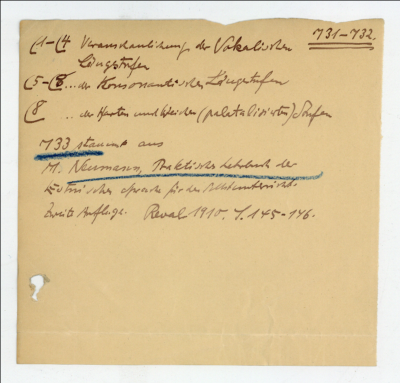 731-732
(1-(4 Veranschaulichung der Vokalischen
Längstufen
(5-(8... der Konsonantischen Längstufen
(8 ... der Harten und Weichen (palatalisierten) Stufen
733 stammt aus
M. Neumann, Praktisches Lehrbuch der
Estnischen Sprache für den Selbstunterricht.
Zweite Auflage. Reval 1910. S. 145-146.